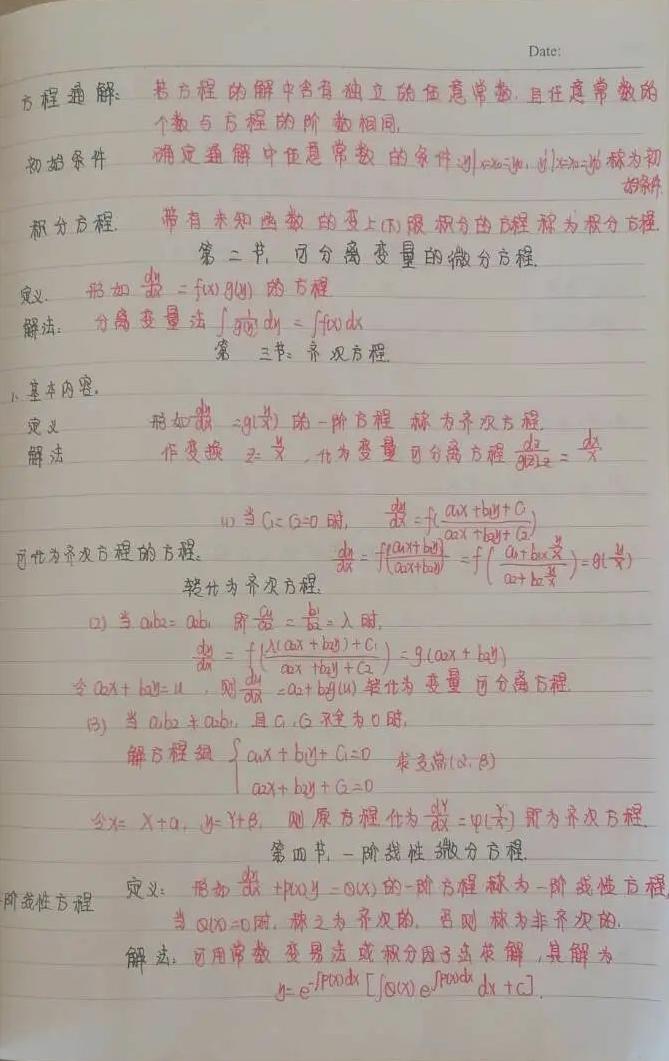 Date:
方程通解: 若方程的解中含有独立的任意常数,且任意常数的
个数与方程的阶数相同.
初始条件 确定通解中任意常数的条件:y|x=x₀=y₀, y'|x=x₀=y₀' 称为初
始条件
积分方程. 带有未知函数的变上(下)限积分的方程称为积分方程.
第二节, 可分离变量的微分方程.
定义. 形如 dy/dx = f(x)g(y) 的方程
解法: 分离变量法 ∫ 1/g(y) dy = ∫f(x)dx
第三节: 齐次方程.
1、基本内容.
定义 形如 dy/dx = g(y/x) 的一阶方程 称为齐次方程.
解法 作变换 z= y/x , 化为变量可分离方程 dz/(g(z)-z) = dx/x
(1) 当 C₁=C₂=0 时, dy/dx = f((a₁x+b₁y+C₁)/(a₂x+b₂y+C₂))
可化为齐次方程的方程. dy/dx = f((a₁x+b₁y)/(a₂x+b₂y)) = f((a₁+b₁ y/x)/(a₂+b₂ y/x)) = g(y/x)
转化为齐次方程.
(2) 当 a₁b₂=a₂b₁ 即 a₁/a₂ = b₁/b₂ = λ 时,
dy/dx = f((λ(a₂x+b₂y)+C₁)/(a₂x+b₂y+C₂)) = g(a₂x+b₂y)
令 a₂x+b₂y=u , 则 du/dx = a₂+b₂g(u) 转化为变量可分离方程.
(3) 当 a₁b₂≠a₂b₁, 且 C₁,C₂ 不全为0时,
解方程组 { a₁x+b₁y+C₁=0 求交点(α,β)
a₂x+b₂y+C₂=0
令x= X+α, y=Y+β, 则原方程化为 dY/dX = φ(Y/X) 所为齐次方程.
第四节, 一阶线性微分方程.
阶线性方程 定义: 形如 dy/dx +p(x)y = Q(x) 的一阶方程称为一阶线性方程,
当 Q(x)=0时, 称之为齐次的, 否则称为非齐次的.
解法: 可用常数变易法或积分因子法求解, 其解为
y=e^{-∫P(x)dx} [∫Q(x) e^{∫P(x)dx} dx +C].